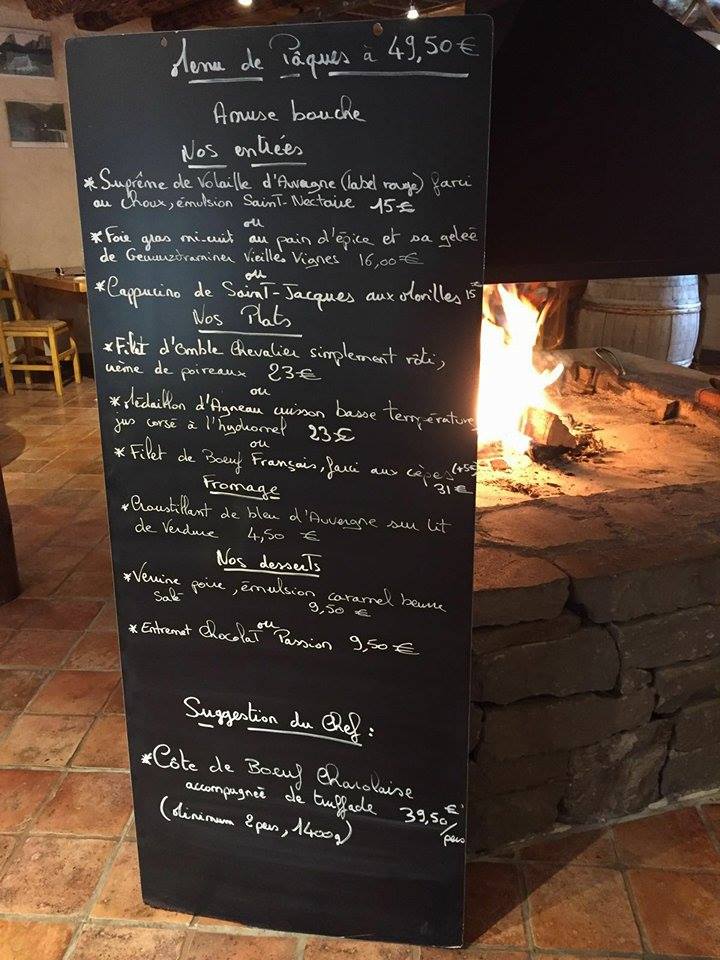 Menu de Pâques à 49,50€
Amuse bouche
Nos entrées
* Suprême de Volaille d'Auvergne (label rouge) farci
au Choux, émulsion Saint-Nectaire 15€
ou
* Foie gras mi-cuit au pain d'épice et sa gelée
de Gewurztraminer Vieilles Vignes 16,00€
ou
* Cappucino de Saint-Jacques aux Morilles 15€
Nos Plats
* Filet d'Omble Chevalier simplement rôti,
crème de poireaux 23€
ou
* Médaillon d'Agneau cuisson basse température,
jus corsé à l'hydromel 23€
ou
* Filet de Boeuf Français, farci aux cèpes (+5€)
31€
Fromage
* Croustillant de bleu d'Auvergne sur lit
de Verdure 4,50 €
Nos desserts
* Verrine poire, émulsion caramel beurre
Salé 9,50 €
ou
* Entremet Chocolat Passion 9,50€
Suggestion du Chef :
* Côte de Boeuf Charolaise
accompagnée de truffade 39,50€/pers
(Minimum 2pers, 1400g)